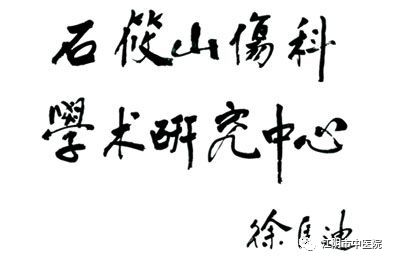 石筱山傷科
學术研究中心
徐匡迪
江阴市中医院